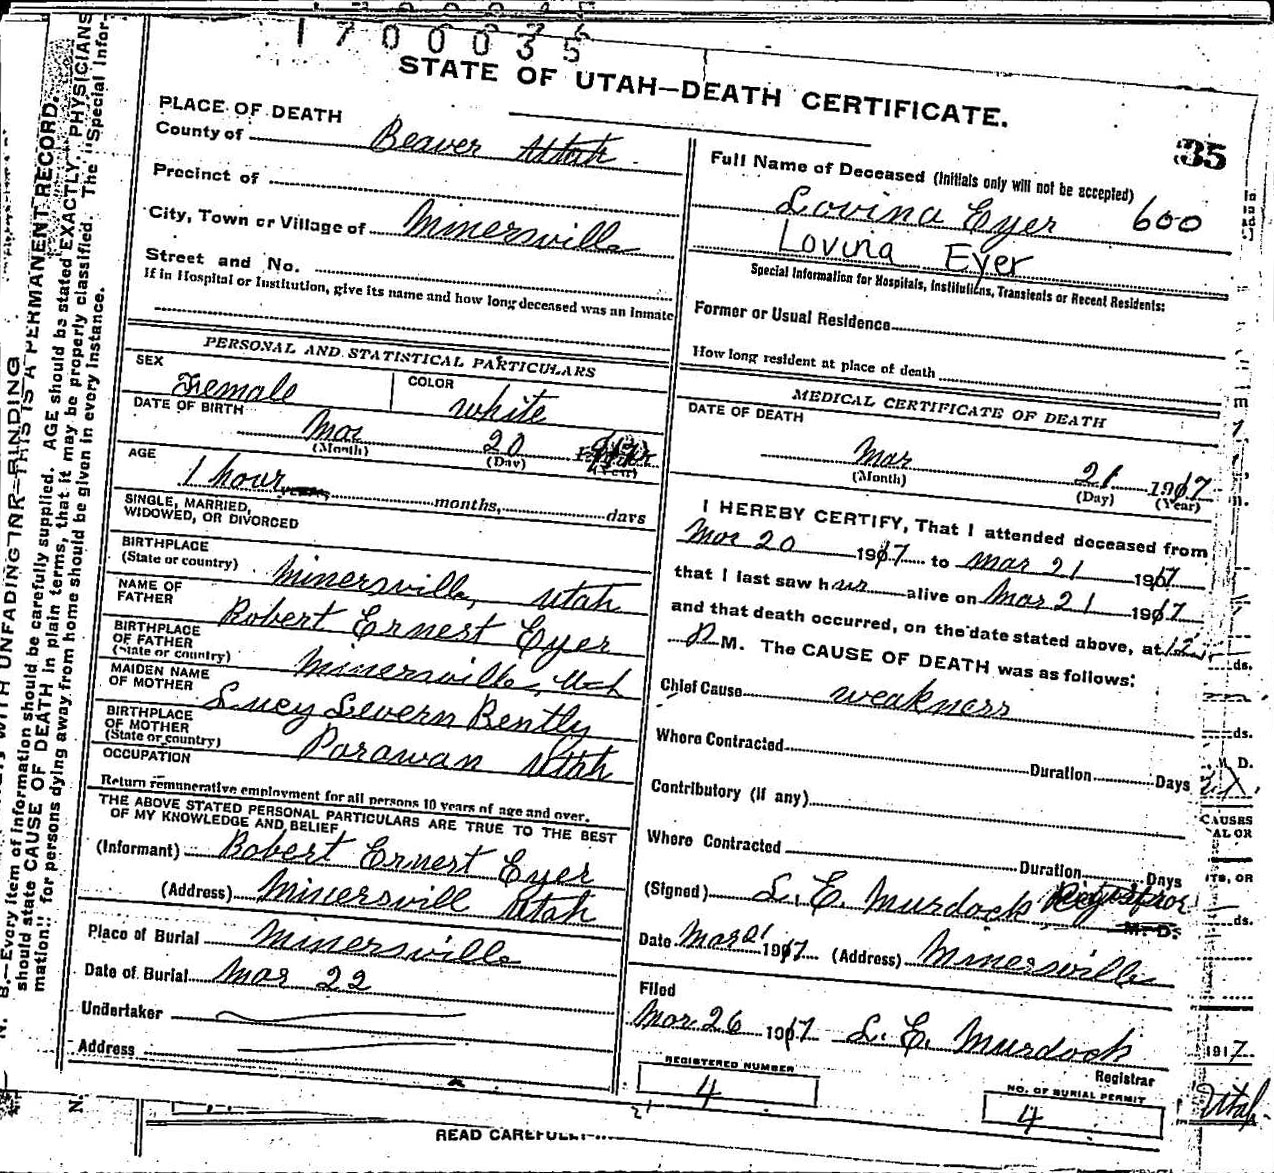 1700035
STATE OF UTAH—DEATH CERTIFICATE.
35
PLACE OF DEATH
County of Beaver Utah
Precinct of
City, Town or Village of Minersville
Street and No.
If in Hospital or Institution, give its name and how long deceased was an inmate
PERSONAL AND STATISTICAL PARTICULARS
SEX
COLOR
Female
white
DATE OF BIRTH
Mar 20
(Month) (Day) (Year)
AGE
1 hour months, days
SINGLE, MARRIED,
WIDOWED, OR DIVORCED
BIRTHPLACE
(State or country) Minersville, Utah
NAME OF
FATHER Robert Ernest Eyer
BIRTHPLACE
OF FATHER
(State or country) Minersville, Utah
MAIDEN NAME
OF MOTHER Lucy Levern Bently
BIRTHPLACE
OF MOTHER
(State or country) Parawan Utah
OCCUPATION
Return remunerative employment for all persons 10 years of age and over.
THE ABOVE STATED PERSONAL PARTICULARS ARE TRUE TO THE BEST
OF MY KNOWLEDGE AND BELIEF
(Informant) Robert Ernest Eyer
(Address) Minersvill Utah
Place of Burial Minersville
Date of Burial Mar 22
Undertaker
Address
Full Name of Deceased (Initials only will not be accepted)
Lovina Eyer 600
Lovina Eyer
Special Information for Hospitals, Institutions, Transients or Recent Residents:
Former or Usual Residence
How long resident at place of death
MEDICAL CERTIFICATE OF DEATH
DATE OF DEATH
Mar 21 1917
(Month) (Day) (Year)
I HEREBY CERTIFY, That I attended deceased from
Mar 20 1917 to Mar 21 1917
that I last saw her alive on Mar 21 1917
and that death occurred, on the date stated above, at 12
P M. The CAUSE OF DEATH was as follows:
Chief Cause weakness
Where Contracted
Duration Days
Contributory (if any)
Where Contracted
Duration Days
(Signed) L. E. Murdock Registrar
M. D.
Date Mar 21 1917 (Address) Minersville
Filed
Mar 26 1917 L. E. Murdock
Registrar
REGISTERED NUMBER
4
NO. OF BURIAL PERMIT
4
1917
Utah
N. B.—Every item of information should be carefully supplied. AGE should be stated EXACTLY. PHYSICIANS
should state CAUSE OF DEATH in plain terms, that it may be properly classified. The "Special Infor-
mation" for persons dying away from home should be given in every instance.
WITH UNFADING INK—THIS IS A PERMANENT RECORD.
READ CAREFULLY